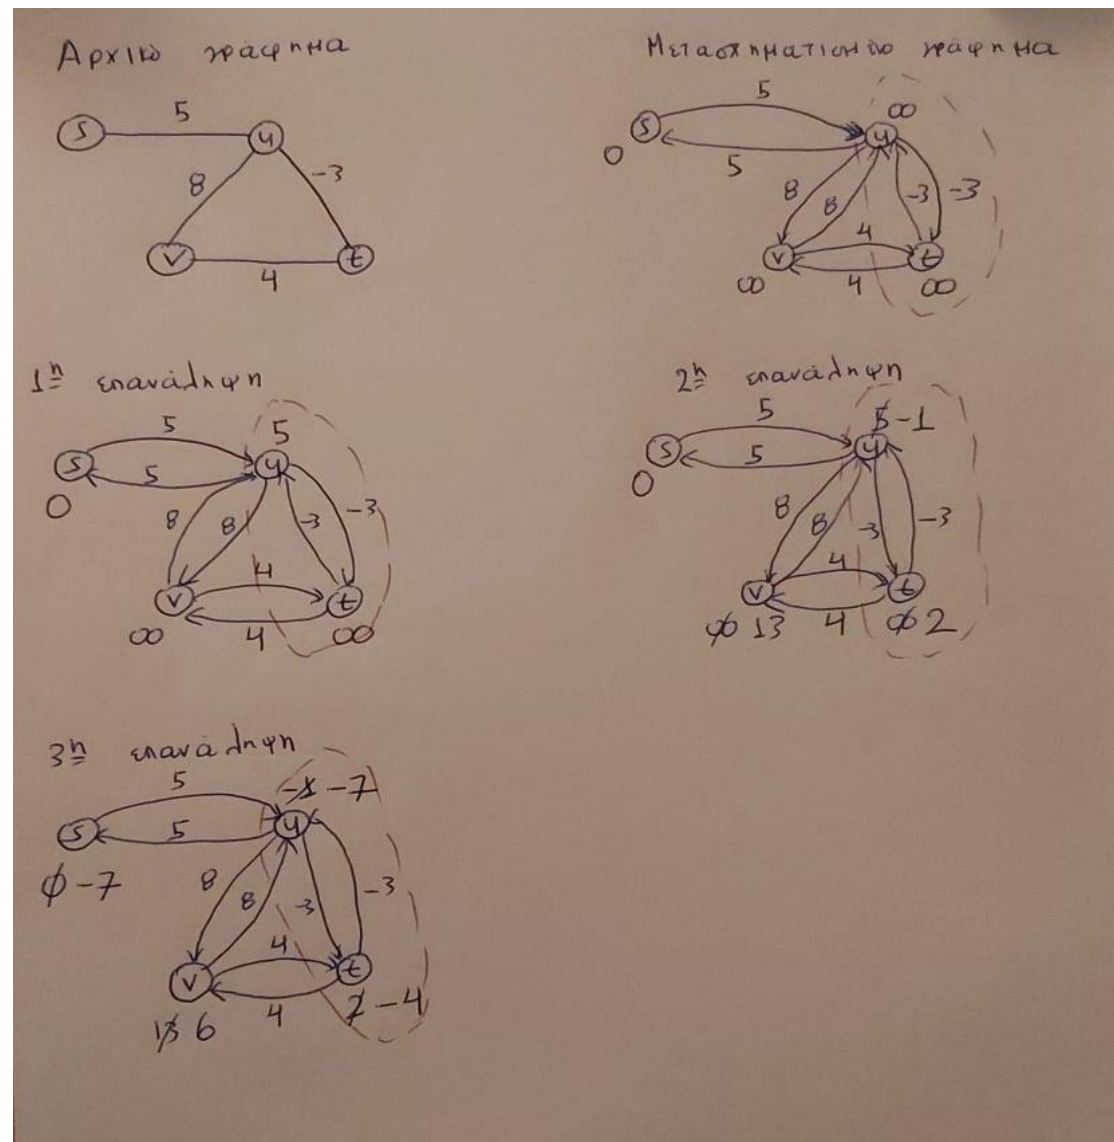 Αρχικό γράφημα
5
s
u
8
-3
v
t
4
Μετασχηματισμένο γράφημα
5
∞
s
u
0
5
8
8
-3
-3
4
v
t
∞
4
∞
1η επανάληψη
5
5
s
u
5
0
8
8
-3
-3
4
v
t
∞
4
∞
2η επανάληψη
5
5 -1
s
u
5
0
8
8
-3
-3
4
v
t
∞ 13
4
∞ 2
3η επανάληψη
5
-1 -7
s
u
5
0 -7
8
8
-3
-3
4
v
t
13 6
4
2 -4